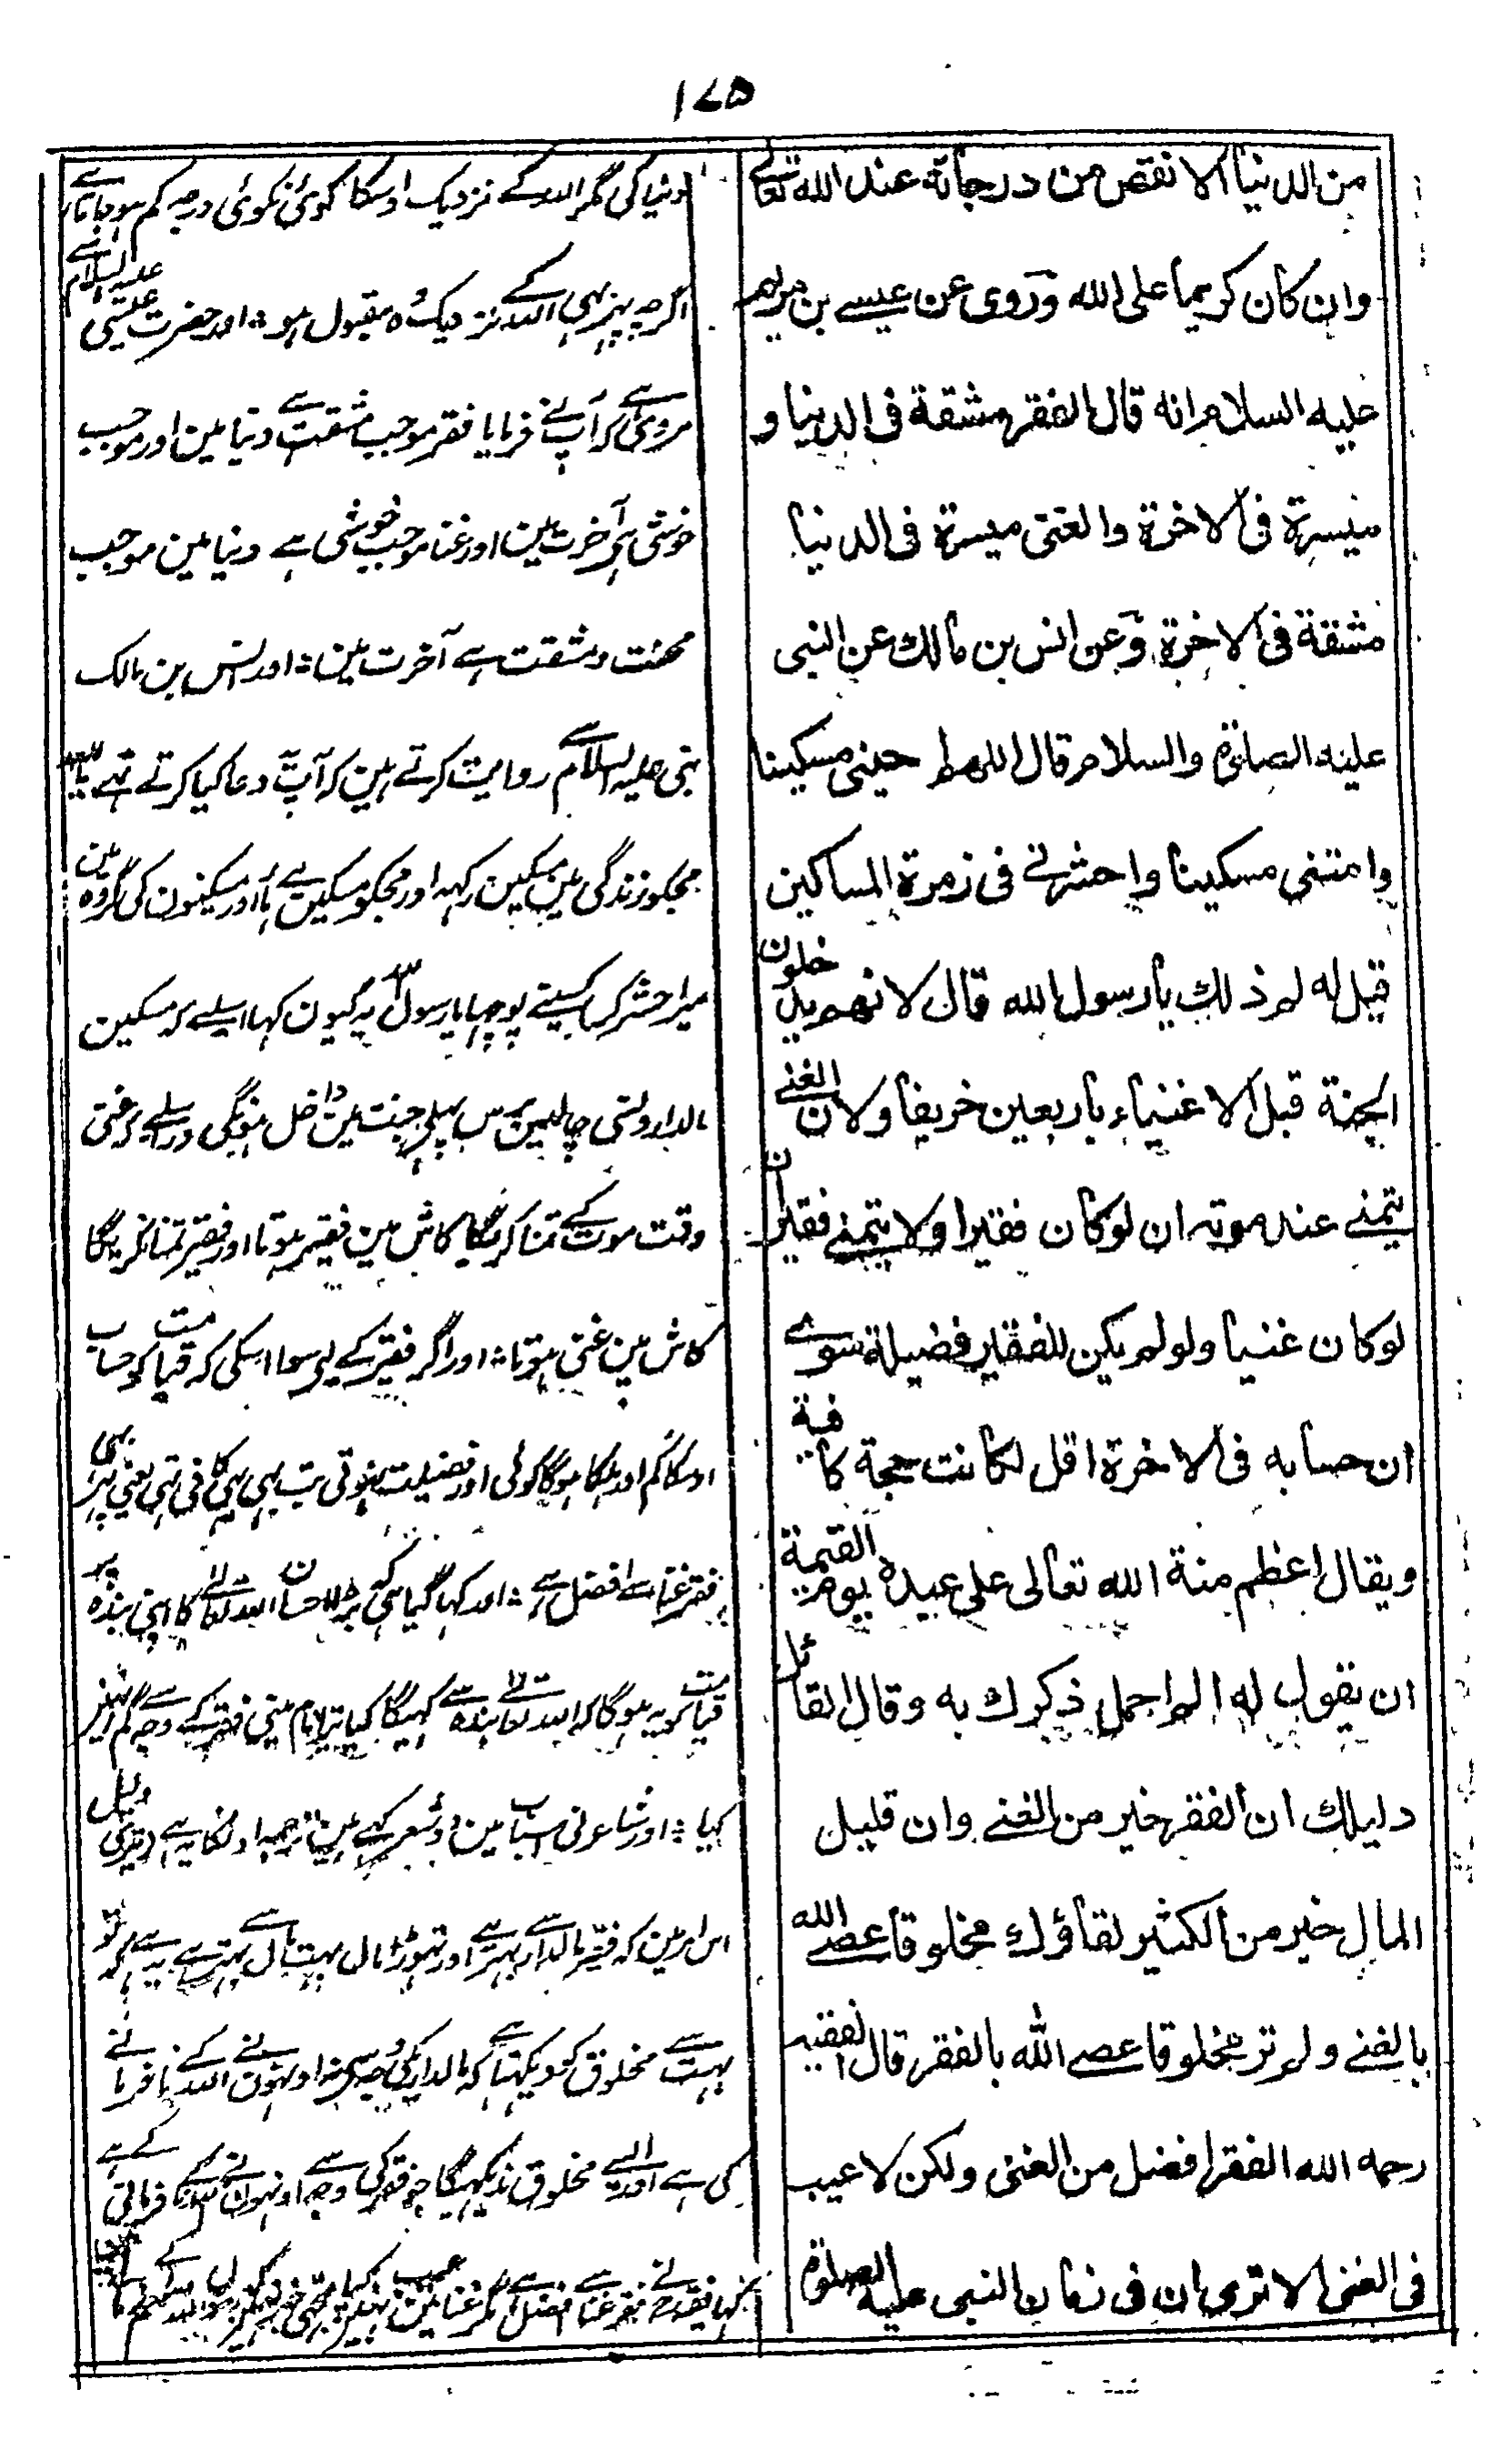 ۱۷۵
من الدنيا الا نقص من درجاته عند الله تعالے
وان كان كريما على الله وروى عن عيسے بن مريم
عليه السلام انه قال الفقر مشقة فى الدنيا و
ميسرة فى الاخرة والغنى ميسرة فى الدنيا
مشقة فى الاخرة وعن انس بن مالك عن النبى
عليه الصلوة والسلام قال اللهم احينى مسكينا
وامتنى مسكينا واحشرنے فى زمرة المساكين
قيل له لم ذلك يا رسول الله قال لانهم يدخلون
الجنة قبل الاغنياء باربعين خريفا ولان الغنے
يتمنے عند موته ان لو كان فقيرا ولا يتمنے فقير ان
لو كان غنيا ولو لم يكن للفقير فضيلة سوے
ان حسابه فى الاخرة اقل لكانت حجة كافية
ويقال اعظم منة الله تعالى على عبده يوم القيمة
ان يقول له الم اجمل ذكرك به وقال القائل
دليلك ان الفقر خير من الغنے وان قليل
المال خير من الكثير لقاؤك مخلوقا عصے الله
بالغنے ولم تر مخلوقا عصے الله بالفقر قال الفقيه
رحمه الله الفقر افضل من الغنى ولكن لا عيب
فى الغنى الا ترى ان فى زمان النبى عليه الصلوة
دنیا کی مگر اللہ کے نزدیک اوسکا کوئی نکوئی درجہ کم ہو جاتا ہے
اگرچہ پہر بہی اللہ کے نزدیک وہ مقبول ہو ؛ اور حضرت عیسی علیہ السلام سے
مروی ہے کہ آپ نے فرمایا فقر موجب مشقت ہے دنیا مین اور موجب
خوشی ہی آخرت مین اور غنا موجب خوشی ہے دنیا مین موجب
محنت و مشقت ہے آخرت مین ؛ اور انس بن مالک
نبی علیہ السلام سے روایت کرتے ہین کہ آپ دعا کیا کرتے تہے یا اللہ
مجکو زندگی مین مسکین رکہہ اور مجکو مسکین ہے مار اور مسکینون کی گروہ مین
میرا حشر کر کسینے پوچہا یا رسول اللہ یہ کیون کہا اسلیے کہ مسکین
مالدارونسی چالیس برس پہلے جنت مین داخل ہونگی اور اسلیے کہ غنی
وقت موت کے تمنا کریگا کاش مین فقیر ہوتا اور فقیر تمنا نکریگا
کاش مین غنی ہوتا ؛ اور اگر فقیر کے لیے سوا اسکی کہ قیامت کو حساب
اوسکا کم اور ہلکا ہوگا کوئی اور فضیلت نہوتی تب بہی یہی کافی تہی یعنی پہر بہی
فقر غنا سے افضل ہے ؛ اور کہا گیا ہی کہ بڑا احسان اللہ تعالے کا اپنی بندہ پر
قیامت کو یہ ہوگا کہ اللہ تعالے بندہ سے کہیگا کیا تیرا نام مینی فقر کے وجہ سے گم نہین
کیا ؛ اور شاعر نی اس باب مین دو شعر کہے ہین ترجمہ اونکا یہ ہے تیری دلیل
اس امر مین کہ فقیر مالدار سے بہتر ہے اور تہوڑا مال بہت مال سے بہتر ہے یہ ہے کہ تو
بہت سے مخلوق کو دیکہتا ہے کہ مالداریکی وجہ سے اونہون نے اللہ کے نافرمانے
کی ہے اور ایسے مخلوق ندیکہیگا جو فقر کی وجہ سے اونہون نے اللہ کے نافرمانی کے ہے
کہا فقیہ نے فقر غنا سے افضل ہے مگر غنا مین عیب نہین کیا